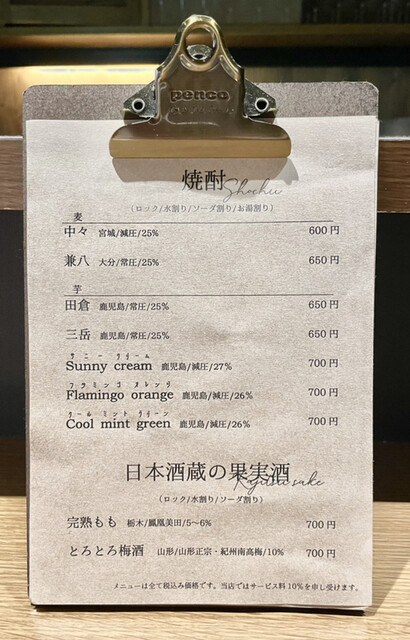 penco
焼酎
Shochu
（ロック/水割り/ソーダ割り/お湯割り）
麦
中々 宮城/減圧/25% 600円
兼八 大分/常圧/25% 650円
芋
田倉 鹿児島/常圧/25% 650円
三岳 鹿児島/常圧/25% 650円
サニー クリーム
Sunny cream 鹿児島/減圧/27% 700円
フラミンゴ オレンジ
Flamingo orange 鹿児島/減圧/26% 700円
クール ミント グリーン
Cool mint green 鹿児島/減圧/26% 700円
日本酒蔵の果実酒
（ロック/水割り/ソーダ割り）
完熟もも 栃木/鳳凰美田/5～6% 700円
とろとろ梅酒 山形/山形正宗・紀州南高梅/10% 700円
メニューは全て税込み価格です。当店ではサービス料10%を申し受けます。